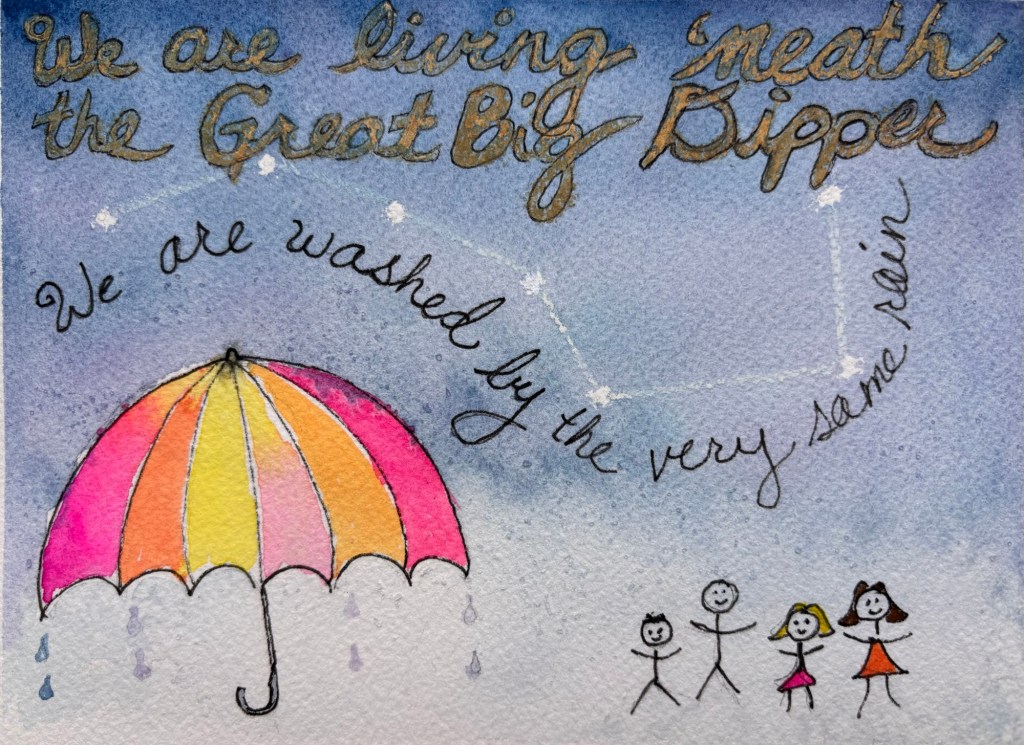 We are living 'neath
the Great Big Dipper
We are washed by the very same rain